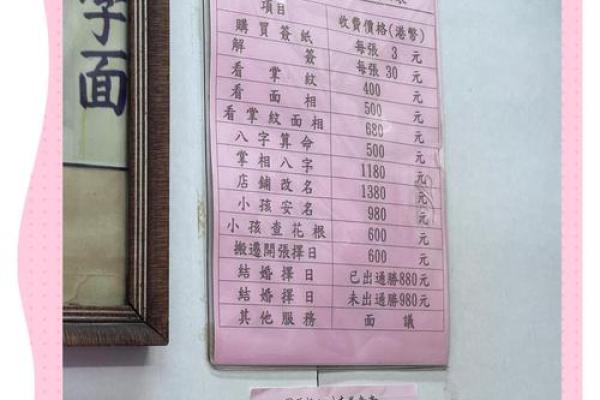 面
項目 收費價格(港幣)
購買簽紙 每張 3 元
解簽 每張 30 元
看掌紋 400 元
看面相 500 元
看掌紋面相 680 元
八字算命 500 元
掌相八字 1180 元
店鋪改名 1380 元
小孩安名 980 元
小孩查花根 600 元
搬遷開張擇日 600 元
結婚擇日 已出通勝880元
結婚擇日 未出通勝980元
其他服務 面議